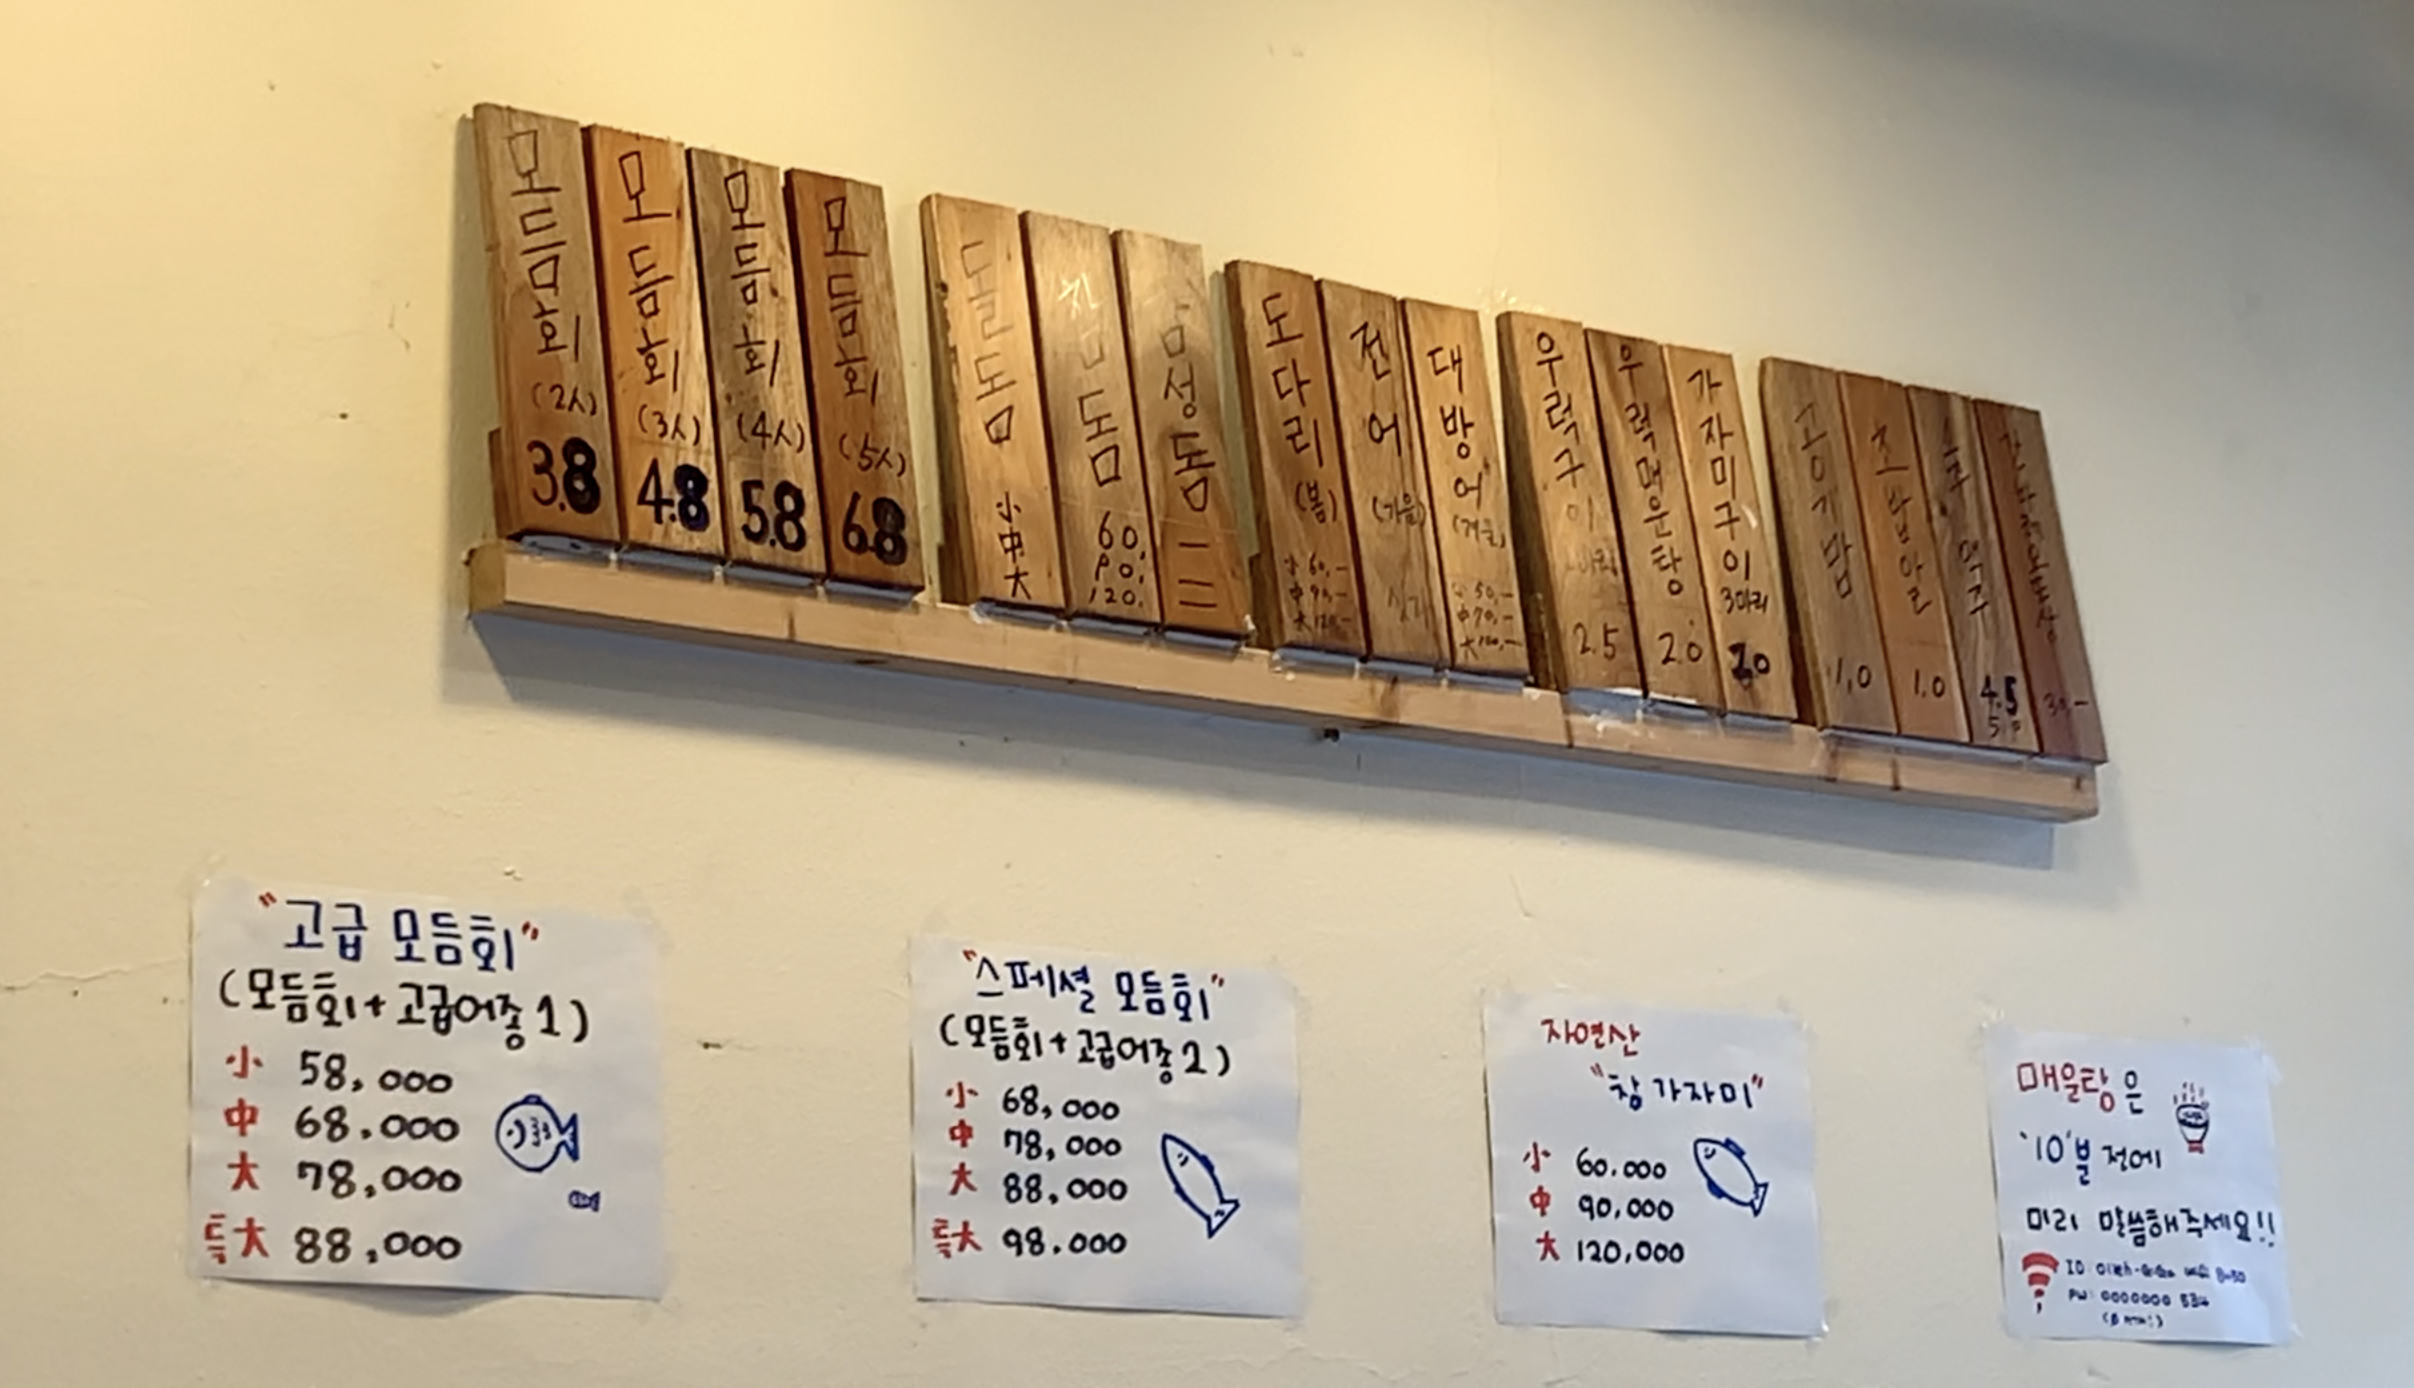 모듬회 (2人) 3.8
모듬회 (3人) 4.8
모듬회 (4人) 5.8
모듬회 (5人) 6.8
돌돔 小 中 大
참돔 60, 90, 120,
감성돔 一 二
도다리 (봄) 小 60,- 中 90,- 大 120,-
전어 (가을) 싯가
대방어 (겨울) 小 50,- 中 70,- 大 100,-
우럭구이 2.5
우럭매운탕 2.0
가자미구이 3마리 2.0
공기밥 1,0
1.0
4.5
30,-
"고급 모듬회"
(모듬회+고급어종1)
小 58,000
中 68.000
大 78,000
특大 88,000
"스페셜 모듬회"
(모듬회+고급어종2)
小 68,000
中 78,000
大 88,000
특大 98.000
자연산
"참 가자미"
小 60.000
中 90,000
大 120,000
매운탕은
'10'분 전에
미리 말씀해주세요!!
ID:
PW: 0000000